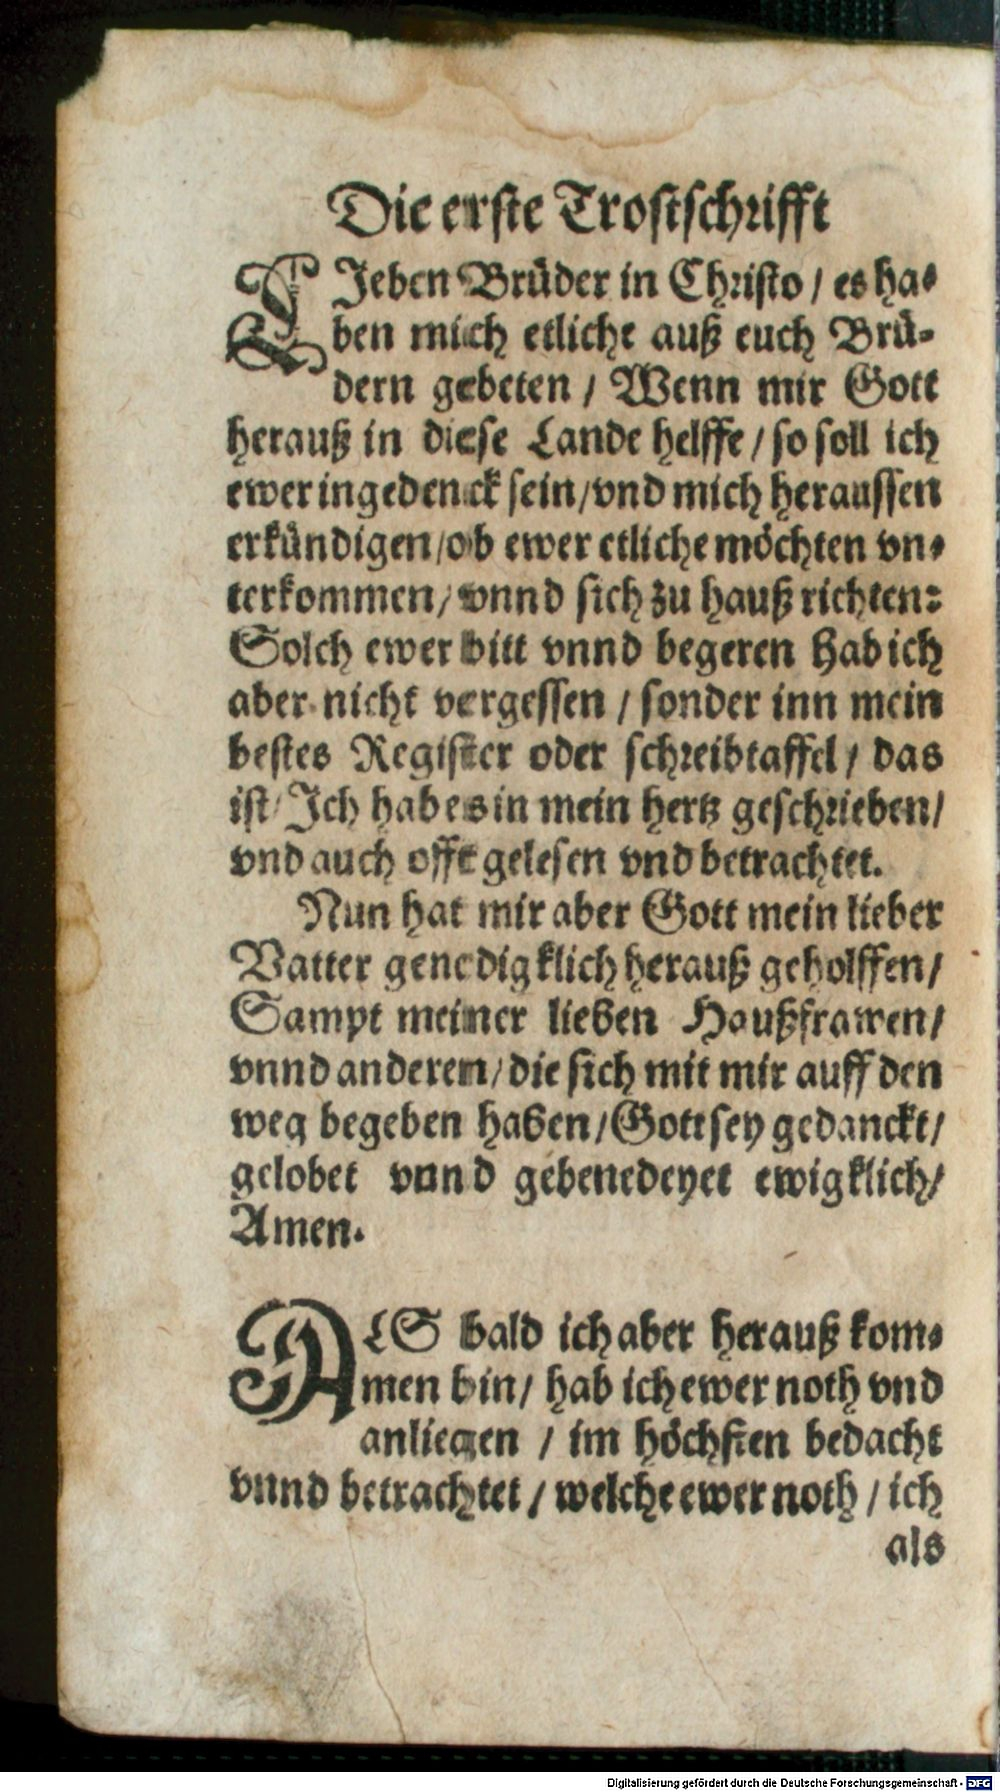 Die erste Trostschrifft
LJeben Brüder in Christo / es ha-
ben mich etliche auß euch Brü-
dern gebeten / Wenn mir Gott
herauß in diese Lande helffe / so soll ich
ewer ingedenck sein/vnd mich heraussen
erkündigen/ob ewer etliche möchten vn-
terkommen/vnnd sich zu hauß richten:
Solch ewer bitt vnnd begeren hab ich
aber nicht vergessen / sonder inn mein
bestes Register oder schreibtaffel / das
ist/Ich hab es in mein hertz geschrieben/
vnd auch offt gelesen vnd betrachtet.
Nun hat mir aber Gott mein lieber
Vatter genedigklich herauß geholffen/
Sampt meiner lieben Haußfrawen/
vnnd anderen/die sich mit mir auff den
weg begeben haben/Gott sey gedanckt/
gelobet vnnd gebenedeyet ewigklich/
Amen.
ALS bald ich aber herauß kom-
men bin/ hab ich ewer noth vnd
anliegen / im höchsten bedacht
vnnd betrachtet / welche ewer noth / ich
als
Digitalisierung gefördert durch die Deutsche Forschungsgemeinschaft - DFG